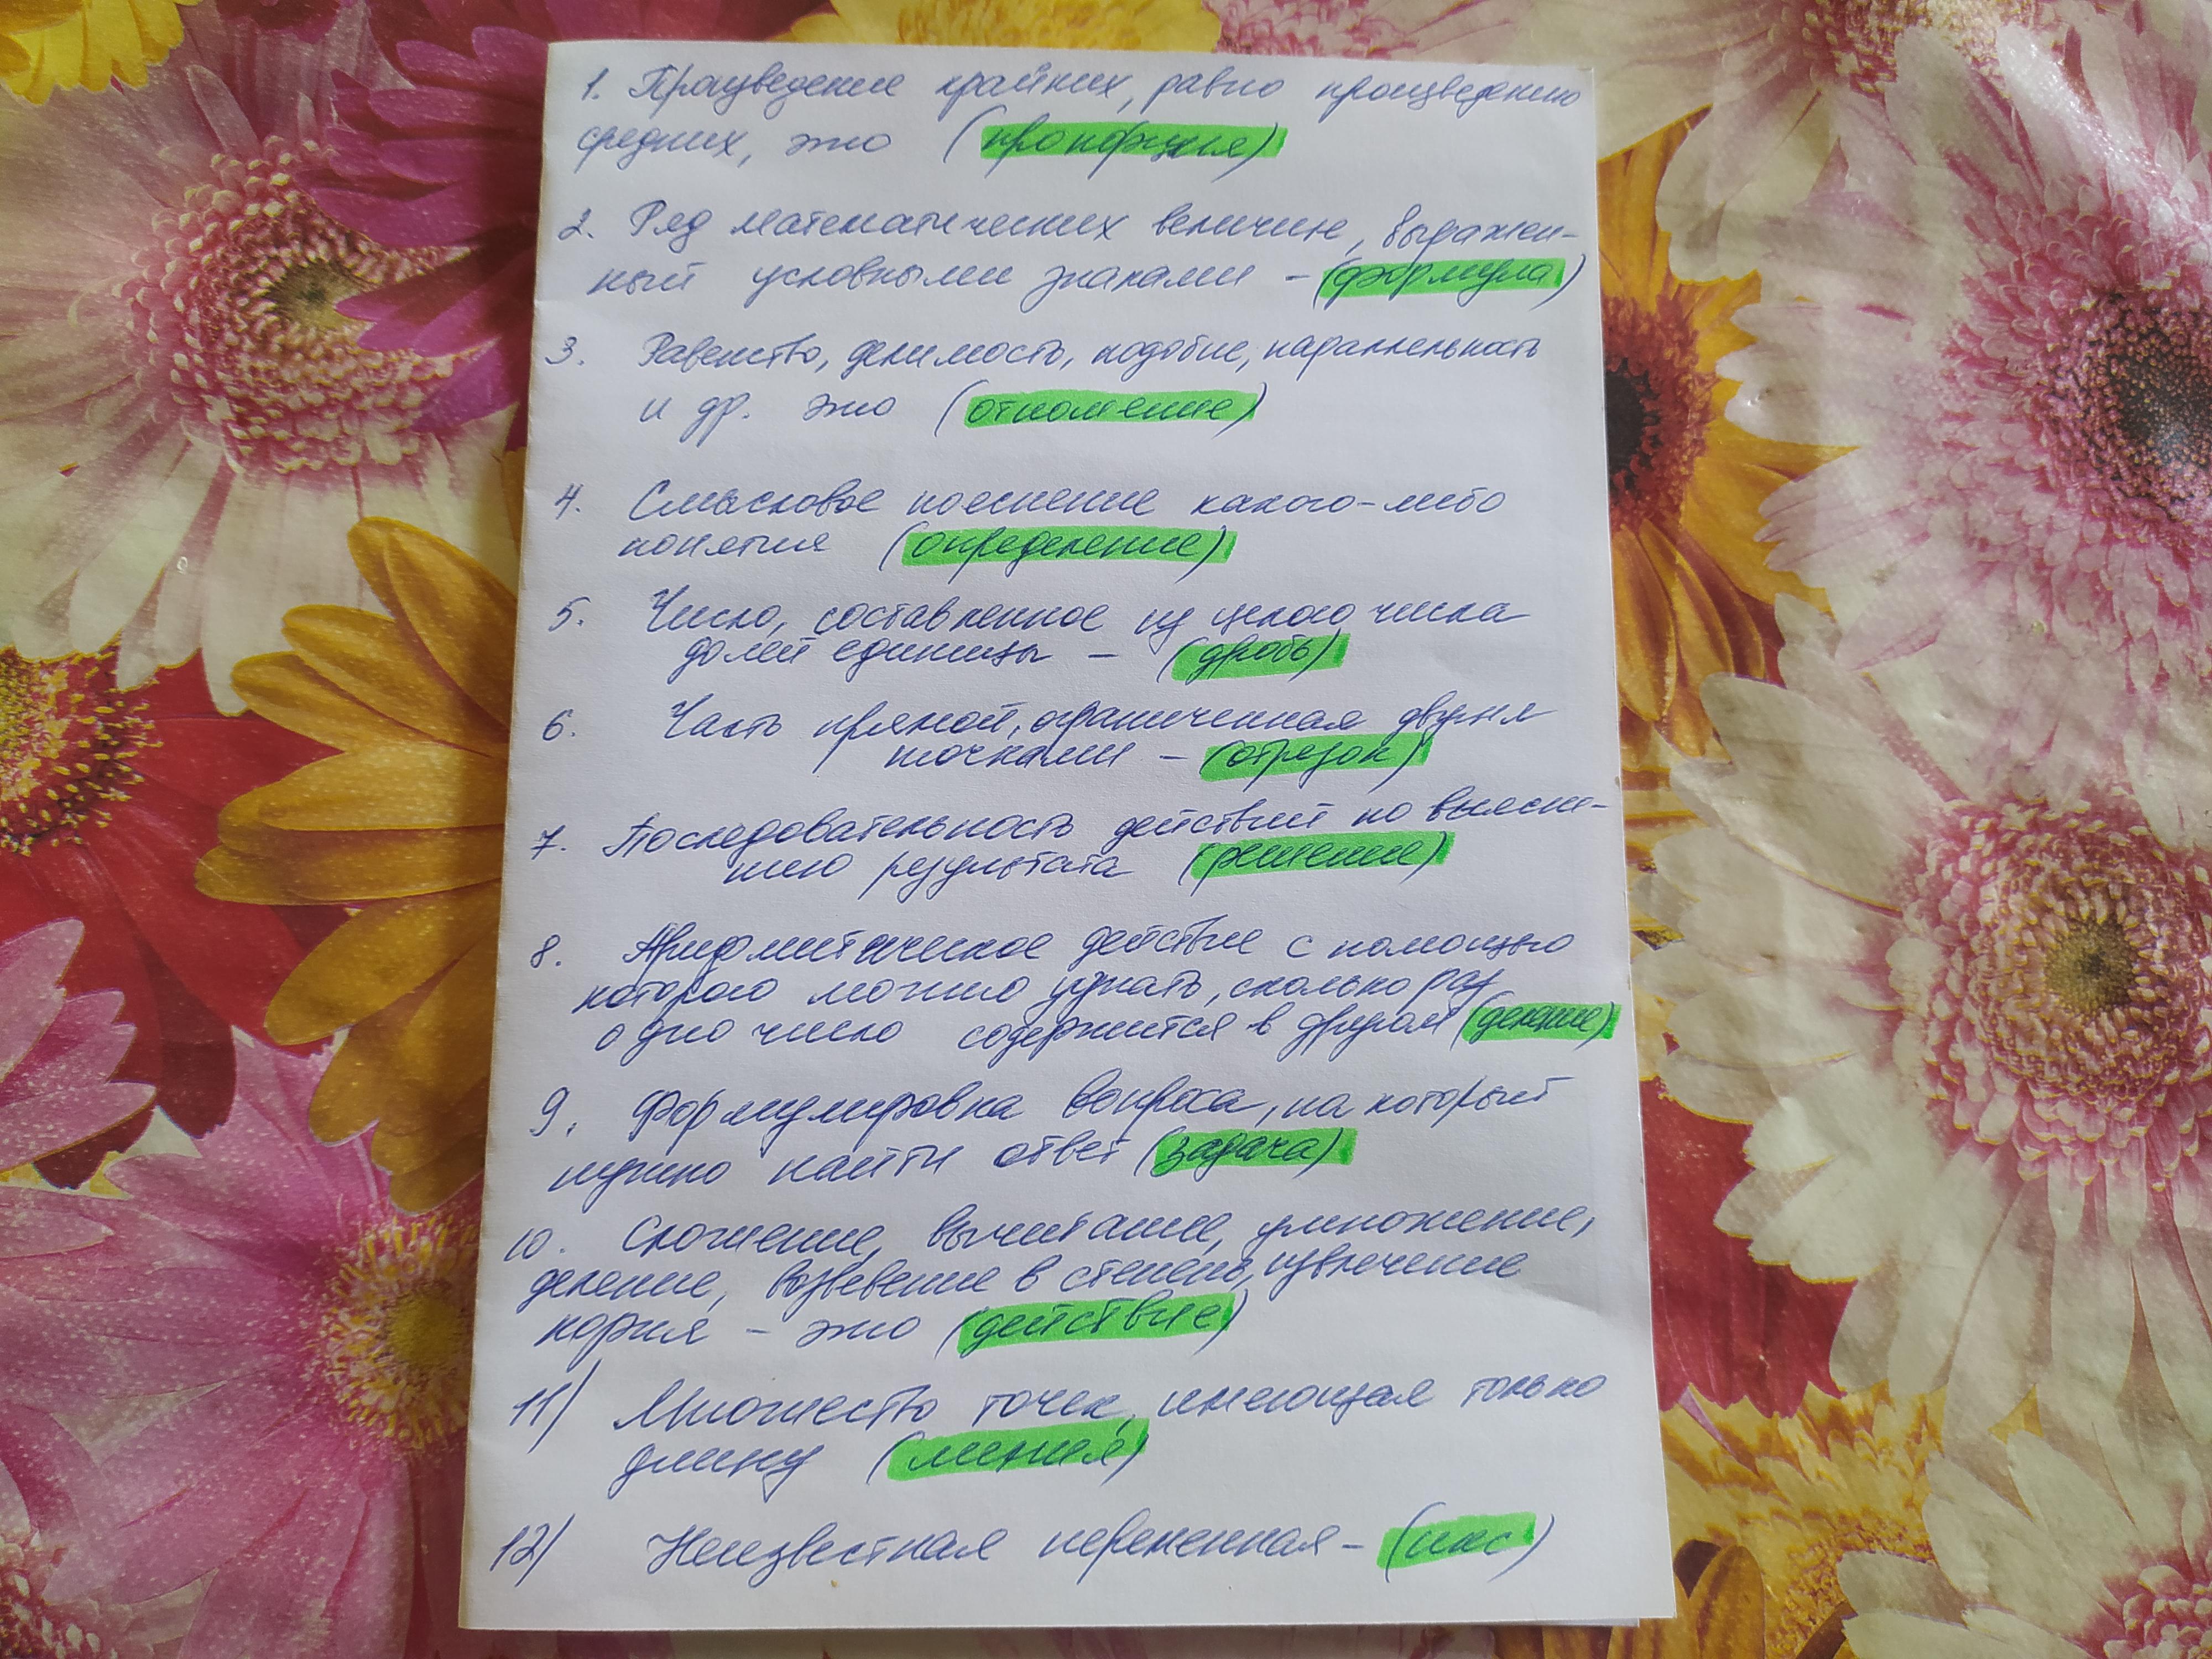 1. Произведение крайних, равно произведению
средних, это (пропорция)
2. Ряд математических величин, выражен-
ный условными знаками - (формула)
3. Равенство, делимость, подобие, параллельность
и др. это (отношение)
4. Смысловое пояснение какого-либо
понятия (определение)
5. Число, составленное из целого числа
долей единицы - (дробь)
6. Часть прямой, ограниченная двумя
точками - (отрезок)
7. Последовательность действий по выясне-
нию результата (решение)
8. Арифмитическое действие с помощью
которого можно узнать, сколько раз
одно число содержится в другом (деление)
9. Формулировка вопроса, на который
нужно найти ответ (задача)
10. Сложение, вычитание, умножение,
деление, возведение в степень, извлечение
корня - это (действие)
11) Множество точек, имеющая только
длину (линия)
12) Неизвестная переменная - (икс)